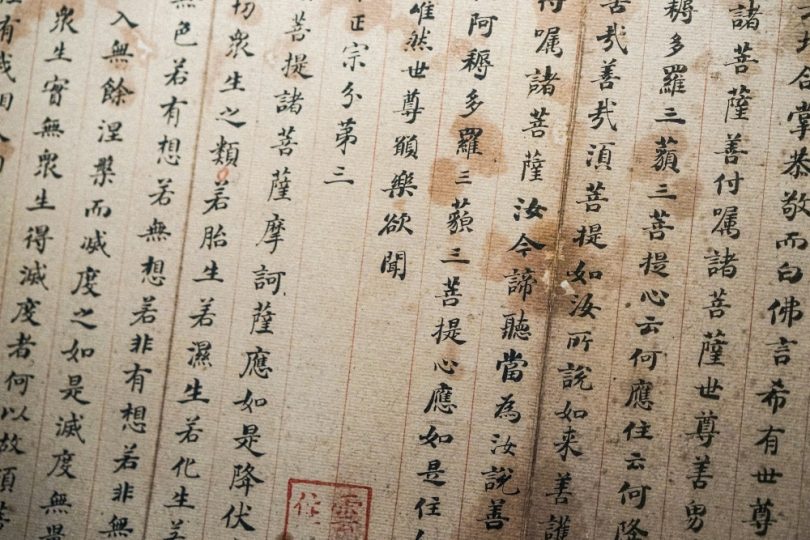 合掌恭敬而白佛言希有世尊
諸菩薩善付囑諸菩薩世尊善男
耨多羅三藐三菩提心云何應住云何降
哉善哉須菩提如汝所說如来善護
付囑諸菩薩汝今諦聽當為汝說善
阿耨多羅三藐三菩提心應如是住
唯然世尊願樂欲聞
正宗分第三
菩提諸菩薩摩訶薩應如是降伏
切衆生之類若胎生若濕生若化生若
無色若有想若無想若非有想若非無
入無餘涅槃而滅度之如是滅度無量
衆生實無衆生得滅度者何以故須菩
有我相人